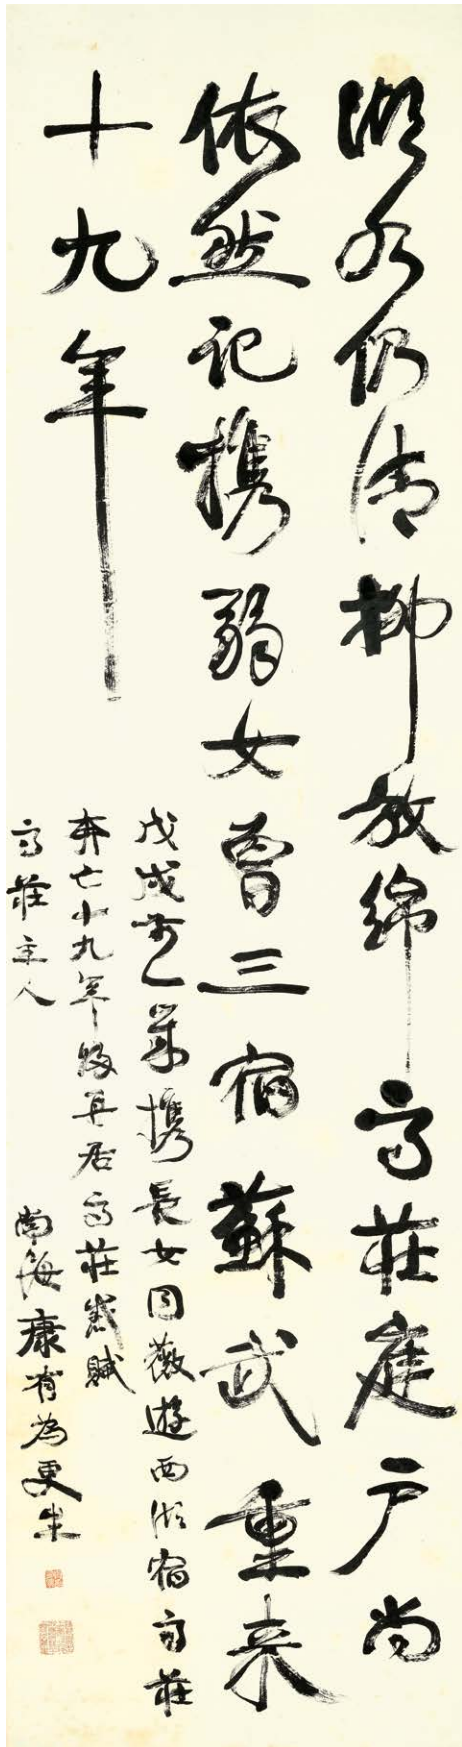 湖水仍清柳放綿高莊庭戶尚
依然記携弱女曾三宿蘇武重来
十九年
戊戌前一年携長女同薇遊西湖宿高莊
奔亡十九年後再居高莊感賦
高莊主人
南海康有為更生